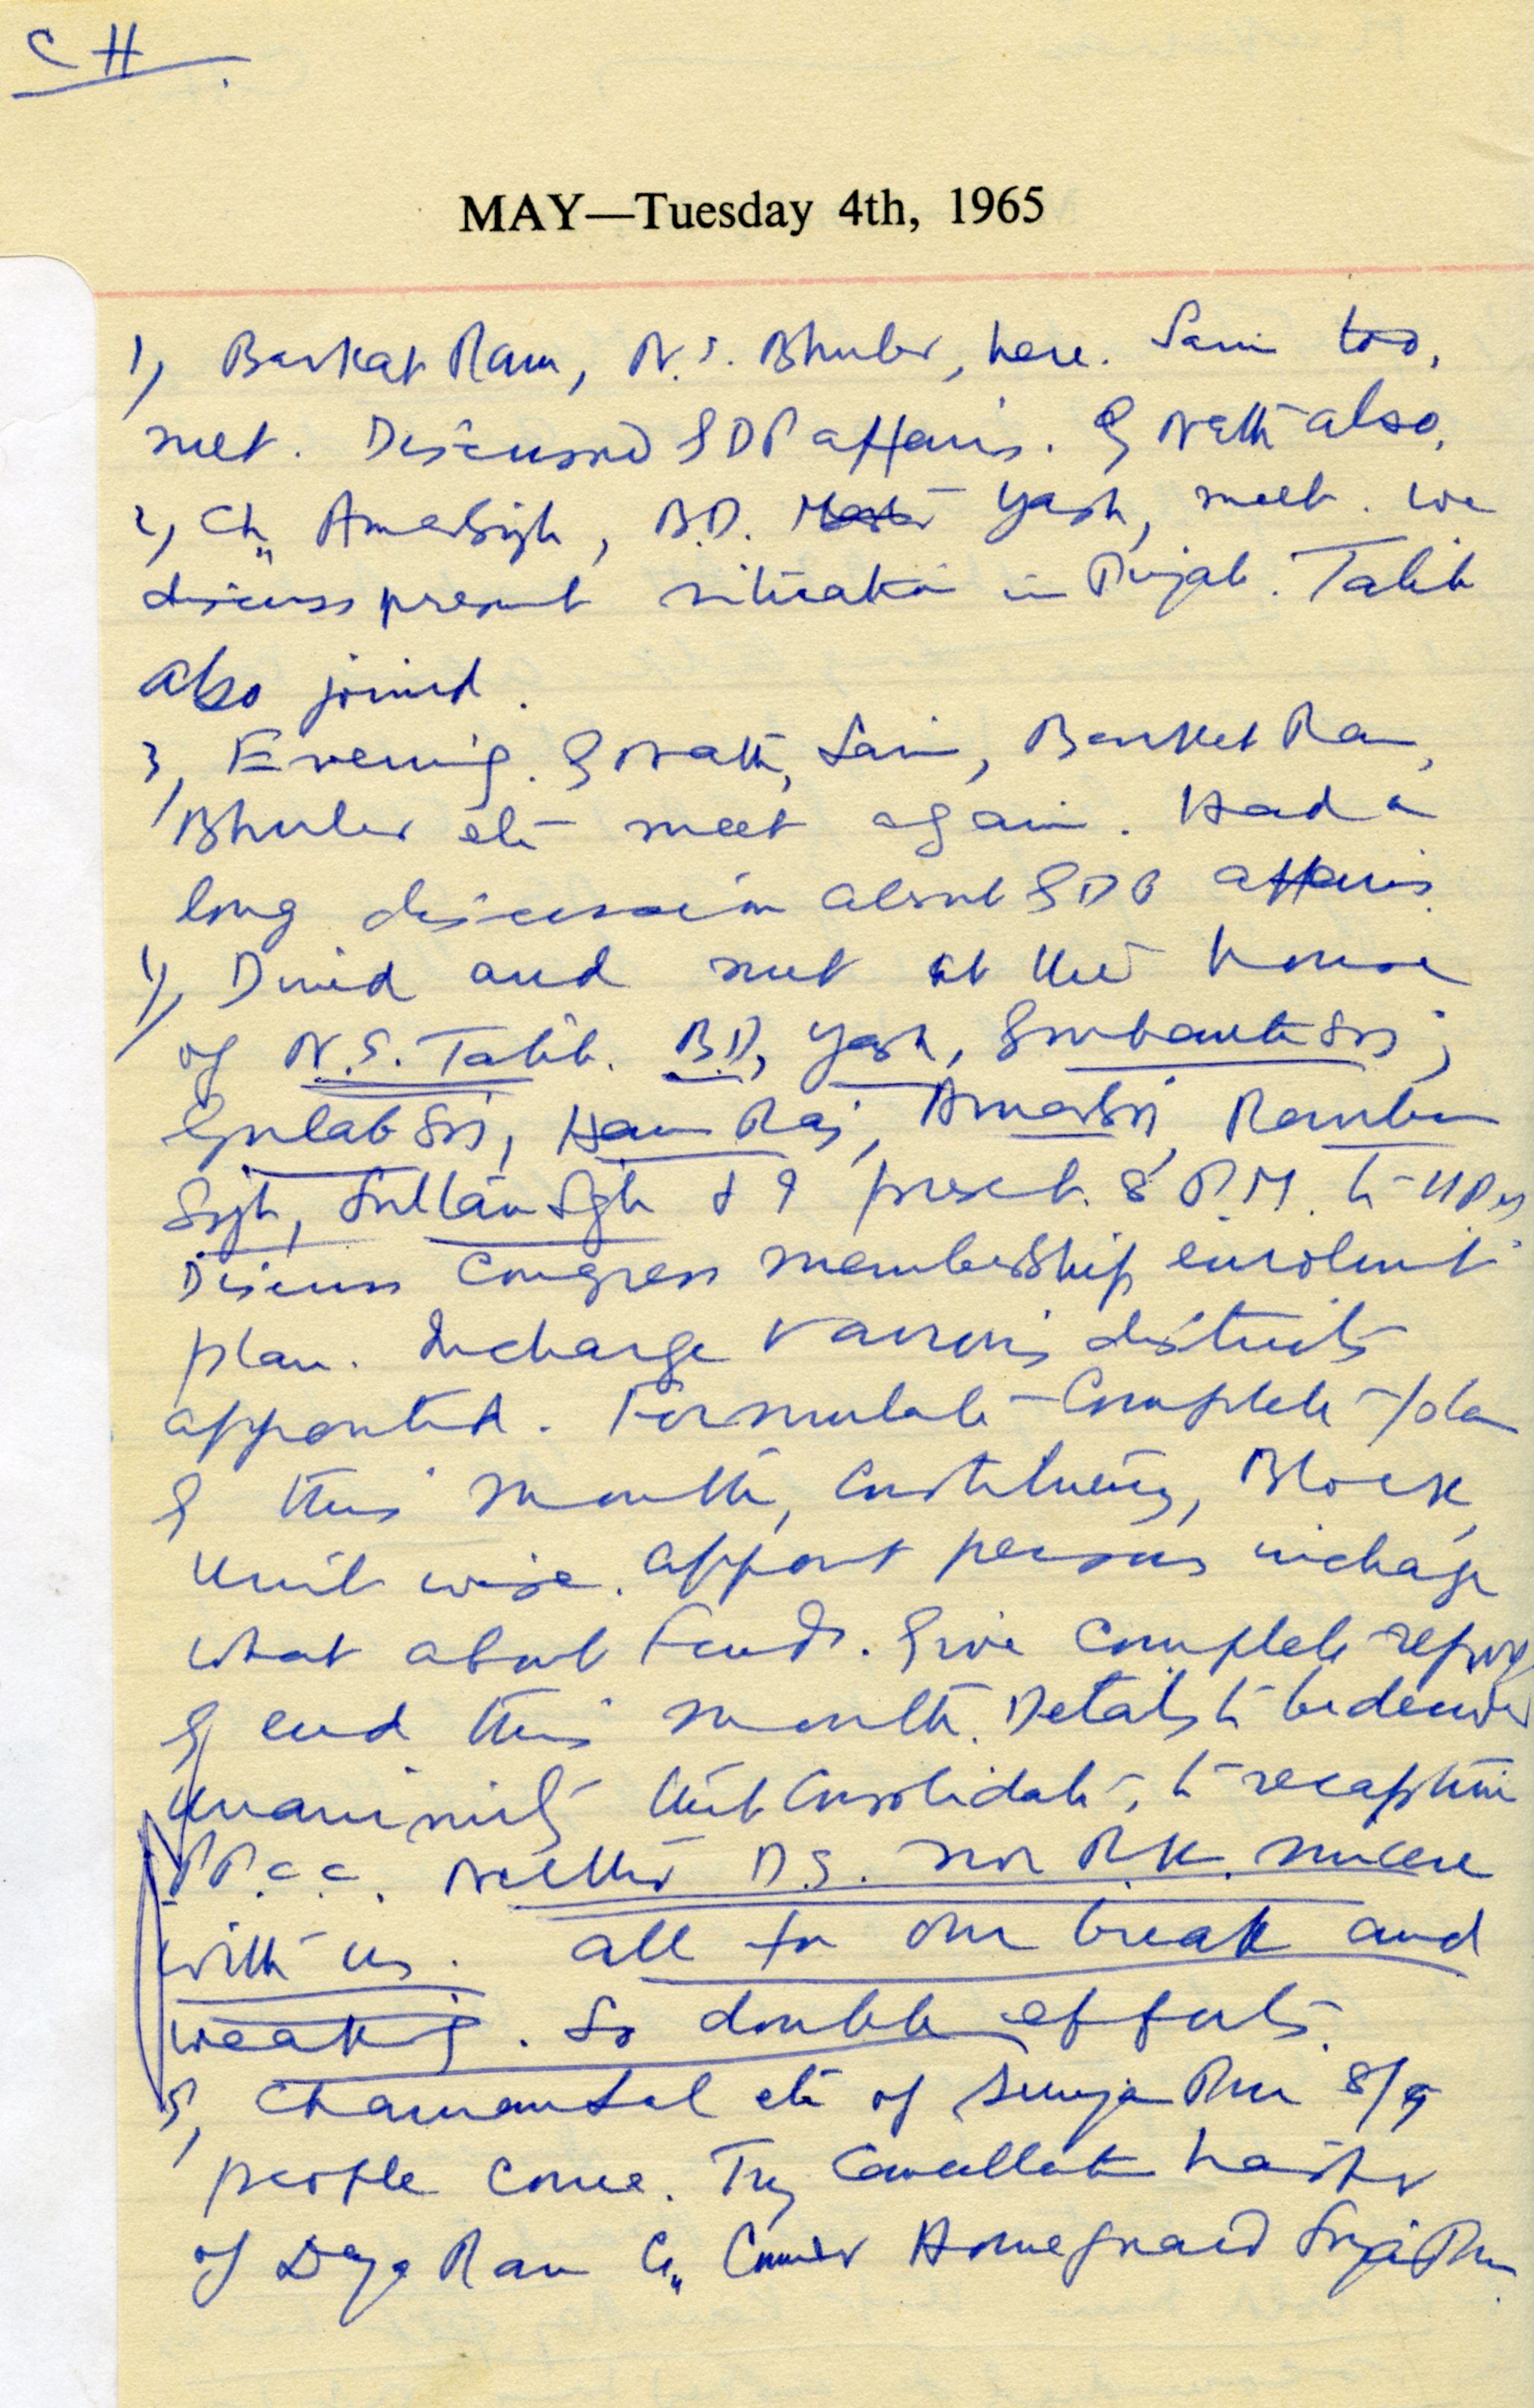 CH.
MAY—Tuesday 4th, 1965
1, Barkat Ram, N.S. Bhuler, here. Saini too,
met. Discussed SDP affairs. G Nath also,
2, Ch. Amar Singh, B.D. Yash, meet. We
discuss present situation in Punjab. Talib
also joined.
3, Evening. G Nath, Saini, Barket Ram,
Bhuler etc meet again. Had a
long discussion about SDP affairs.
4, Dined and met at the house
of N.S. Talib. B.D, Yash, Gurbanta Sing,
Gulab Sing, Hans Raj, Amar Sing, Rambir
Singh, Sultan Singh & I present. 8 P.M. to 11 PM
Discuss Congress membership enrolment
plan. Incharge various districts
appointed. Formulate Complete plan
by this month, Constituency, Block,
Unit wise. appoint persons incharge
what about Funds. Give complete
by end this month. Details to be decided
unanimity Consolidate, to recapture
P.P.C.C. Neither D.S. nor R.K. sincere
with us. all for our break and
weaking. So double efforts.
5, Chamanlal etc of 8/9
people come. Try Cancellation
of Daya Ram Homeguard